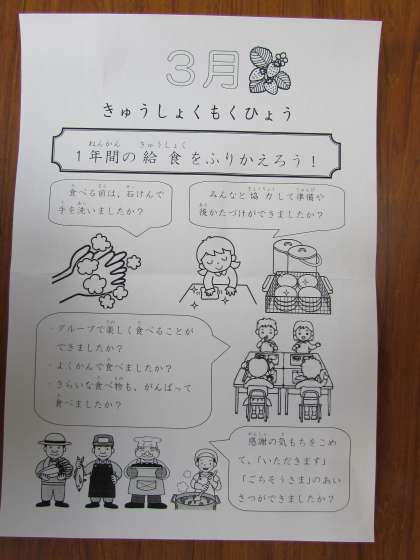 3月
きゅうしょくもくひょう
1年間の給食をふりかえろう！
食べる前は、石けんで
手を洗いましたか？
みんなと協力して準備や
後かたづけができましたか？
・グループで楽しく食べることが
できましたか？
・よくかんで食べましたか？
・きらいな食べ物も、がんばって
食べましたか？
感謝の気もちをこめ
て、「いただきます」
「ごちそうさま」のあい
さつができましたか？